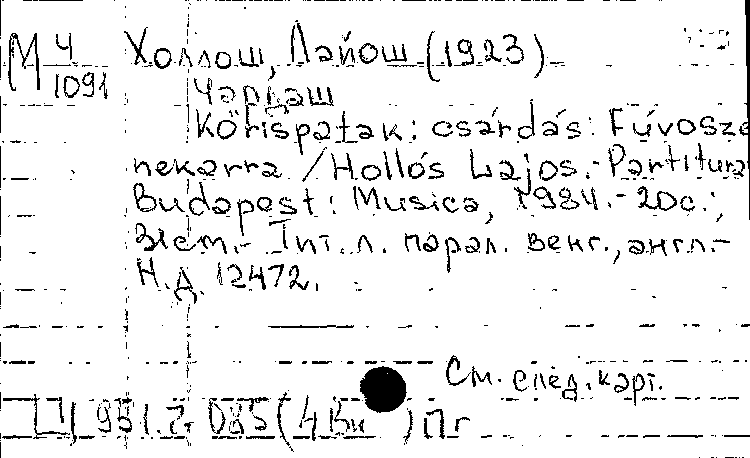 М Ч Холлош, Лайош (1923)
1091
Чардаш
Kőrispatak: csárdás: Fúvósze
nekarra / Hollós Lajos.- Partitura
Budapest: Musica, 1984.- 20с.;
31см.- Тит.л. парал. венг., англ.-
Н.д. 12472.
См. след. карт.
Ц 951.2 D85 (4Вн ) Пг